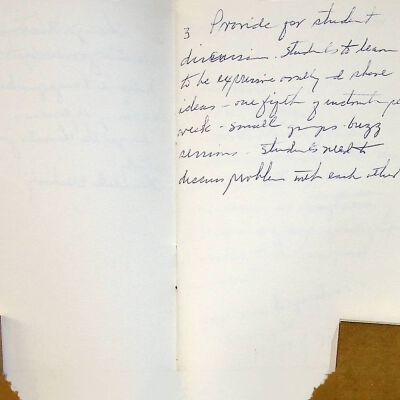 3 Provide for student
discussion. Students to learn
to be expressive orally & share
ideas - one fifth of instruct. pe
week - small groups - buzz
sessions. Students need to
discuss problem with each other